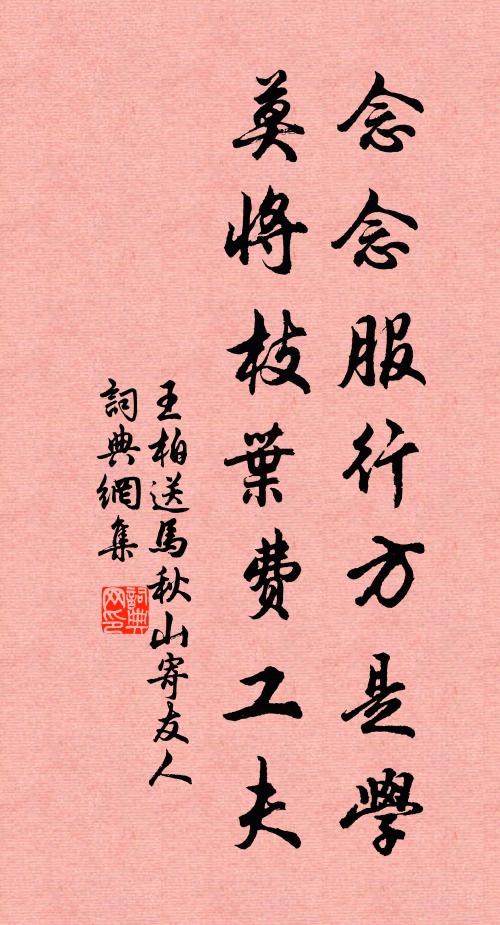 念念服行方是學
莫將枝葉費工夫
王柏送馬秋山寄友人
詞典網集
詞典网印